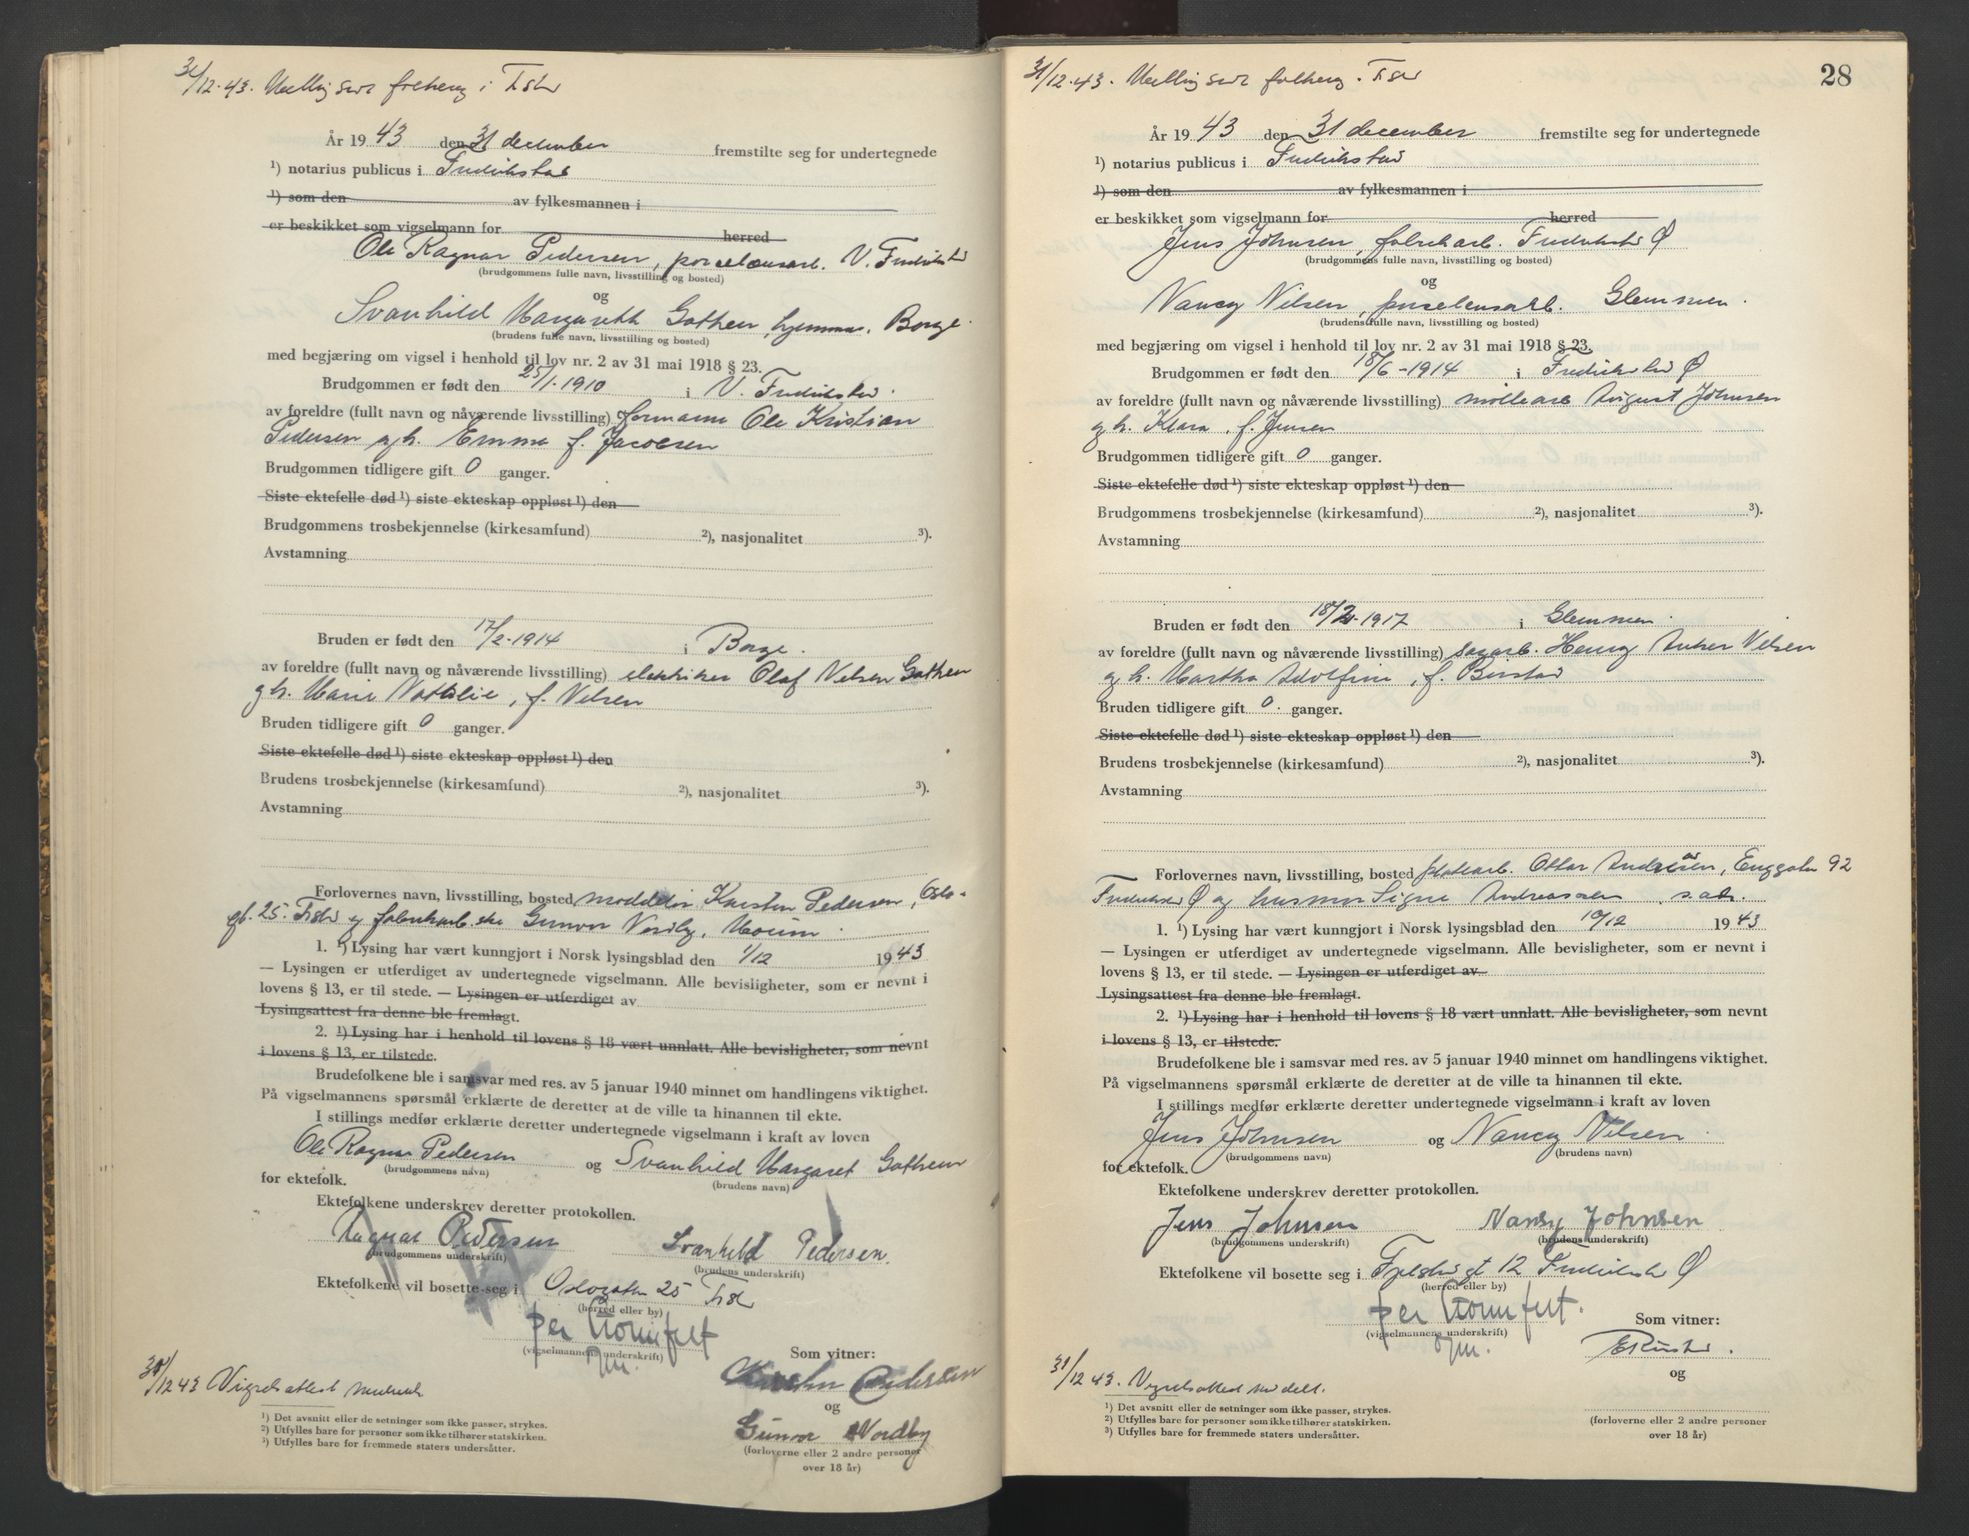 31/12.43.
År 1943 den 31 december fremstilte seg for undertegnede
¹) notarius publicus i Fredrikstad
¹) som den av fylkesmannen i
er beskikket som vigselmann for herred
Ole Ragnar Pedersen, porcelensarb. V. Fredrikstad
(brudgommens fulle navn, livsstilling og bosted)
og
Svanhild Margareth Gathen, hjemme, Borge.
(brudens fulle navn, livsstilling og bosted)
med begjæring om vigsel i henhold til lov nr. 2 av 31 mai 1918 § 23.
Brudgommen er født den 25/1.1910 i V. Fredrikstad.
av foreldre (fullt navn og nåværende livsstilling) formann Ole Kristian
Pedersen og h. Emma f. Jacobsen
Brudgommen tidligere gift 0 ganger.
Siste ektefelle død ¹) siste ekteskap oppløst ¹) den
Brudgommens trosbekjennelse (kirkesamfund) ²), nasjonalitet ³).
Avstamning
Bruden er født den 17/2-1914 i Borge.
av foreldre (fullt navn og nåværende livsstilling) elektriker Olaf Nilsen Gathen
og h. Marie Nathalie, f. Nilsen
Bruden tidligere gift 0 ganger.
Siste ektefelle død ¹) siste ekteskap oppløst ¹) den
Brudens trosbekjennelse (kirkesamfund) ²), nasjonalitet ³).
Avstamning
Forlovernes navn, livsstilling, bosted Karsten Pedersen, Oslo-
gt. 25. Fstd og fabrikarb.ske Gunvor Nordby, Moum.
1. ¹) Lysing har vært kunngjort i Norsk lysingsblad den 1/12 1943
— Lysingen er utferdiget av undertegnede vigselmann. Alle bevisligheter, som er nevnt i
lovens § 13, er til stede. — Lysingen er utferdiget av
Lysingsattest fra denne ble fremlagt.
2. ¹) Lysing har i henhold til lovens § 18 vært unnlatt. Alle bevisligheter, som nevnt
i lovens § 13, er tilstede.
Brudefolkene ble i samsvar med res. av 5 januar 1940 minnet om handlingens viktighet.
På vigselmannens spørsmål erklærte de deretter at de ville ta hinannen til ekte.
I stillings medfør erklærte deretter undertegnede vigselmann i kraft av loven
Ole Ragnar Pedersen og Svanhild Margaret Gathen
(brudgommens navn) (brudens navn)
for ektefolk.
Ektefolkene underskrev deretter protokollen.
Ragnar Pedersen Svanhild Pedersen.
(brudgommens underskrift) (brudens underskrift)
Ektefolkene vil bosette seg i Oslogaten 25 Fstd
(herred eller by)
per
(vigselmannens underskrift)
Som vitner:
Karsten Pedersen
og
Gunvor Nordby
(forloverne eller 2 andre personer
over 18 år)
12 43 Vigselsattest
¹) Det avsnitt eller de setninger som ikke passer, strykes.
²) Utfylles bare for personer som ikke tilhører statskirken.
³) Utfylles bare for fremmede staters undersåtter.
28
31/12.43.
År 1943 den 31 december fremstilte seg for undertegnede
¹) notarius publicus i Fredrikstad
¹) som den av fylkesmannen i
er beskikket som vigselmann for herred
Jens Johnsen, fabrikarb. Fredrikstad Ø
(brudgommens fulle navn, livsstilling og bosted)
og
Nancy Nilsen, porselensarb. Glemmen.
(brudens fulle navn, livsstilling og bosted)
med begjæring om vigsel i henhold til lov nr. 2 av 31 mai 1918 § 23.
Brudgommen er født den 18/6-1914 i Fredrikstad Ø
av foreldre (fullt navn og nåværende livsstilling) møllearb August Johnsen
og h. Klara, f. Jensen
Brudgommen tidligere gift 0 ganger.
Siste ektefelle død ¹) siste ekteskap oppløst ¹) den
Brudgommens trosbekjennelse (kirkesamfund) ²), nasjonalitet ³).
Avstamning
Bruden er født den 18/2-1917 i Glemmen.
av foreldre (fullt navn og nåværende livsstilling) sagarb. Henry Anker Nilsen
og h. Martha Adolfine, f.
Bruden tidligere gift 0. ganger.
Siste ektefelle død ¹) siste ekteskap oppløst ¹) den
Brudens trosbekjennelse (kirkesamfund) ²), nasjonalitet ³).
Avstamning
Forlovernes navn, livsstilling, bosted Ottar Andreassen, Enggatn 92
Fredrikstd Ø og husmor Signe Andreassen s.adr.
1. ¹) Lysing har vært kunngjort i Norsk lysingsblad den 10/12 1943
— Lysingen er utferdiget av undertegnede vigselmann. Alle bevisligheter, som er nevnt i
lovens § 13, er til stede. — Lysingen er utferdiget av
Lysingsattest fra denne ble fremlagt.
2. ¹) Lysing har i henhold til lovens § 18 vært unnlatt. Alle bevisligheter, som nevnt
i lovens § 13, er tilstede.
Brudefolkene ble i samsvar med res. av 5 januar 1940 minnet om handlingens viktighet.
På vigselmannens spørsmål erklærte de deretter at de ville ta hinannen til ekte.
I stillings medfør erklærte deretter undertegnede vigselmann i kraft av loven
Jens Johnsen og Nancy Nilsen
(brudgommens navn) (brudens navn)
for ektefolk.
Ektefolkene underskrev deretter protokollen.
Jens Johnsen Nancy Johnsen
(brudgommens underskrift) (brudens underskrift)
Ektefolkene vil bosette seg i gt 12 Fredrikstd Ø
(herred eller by)
per
(vigselmannens underskrift)
Som vitner:
og
(forloverne eller 2 andre personer
over 18 år)
31/12 43. Vigselsattest meddelt.
¹) Det avsnitt eller de setninger som ikke passer, strykes.
²) Utfylles bare for personer som ikke tilhører statskirken.
³) Utfylles bare for fremmede staters undersåtter.